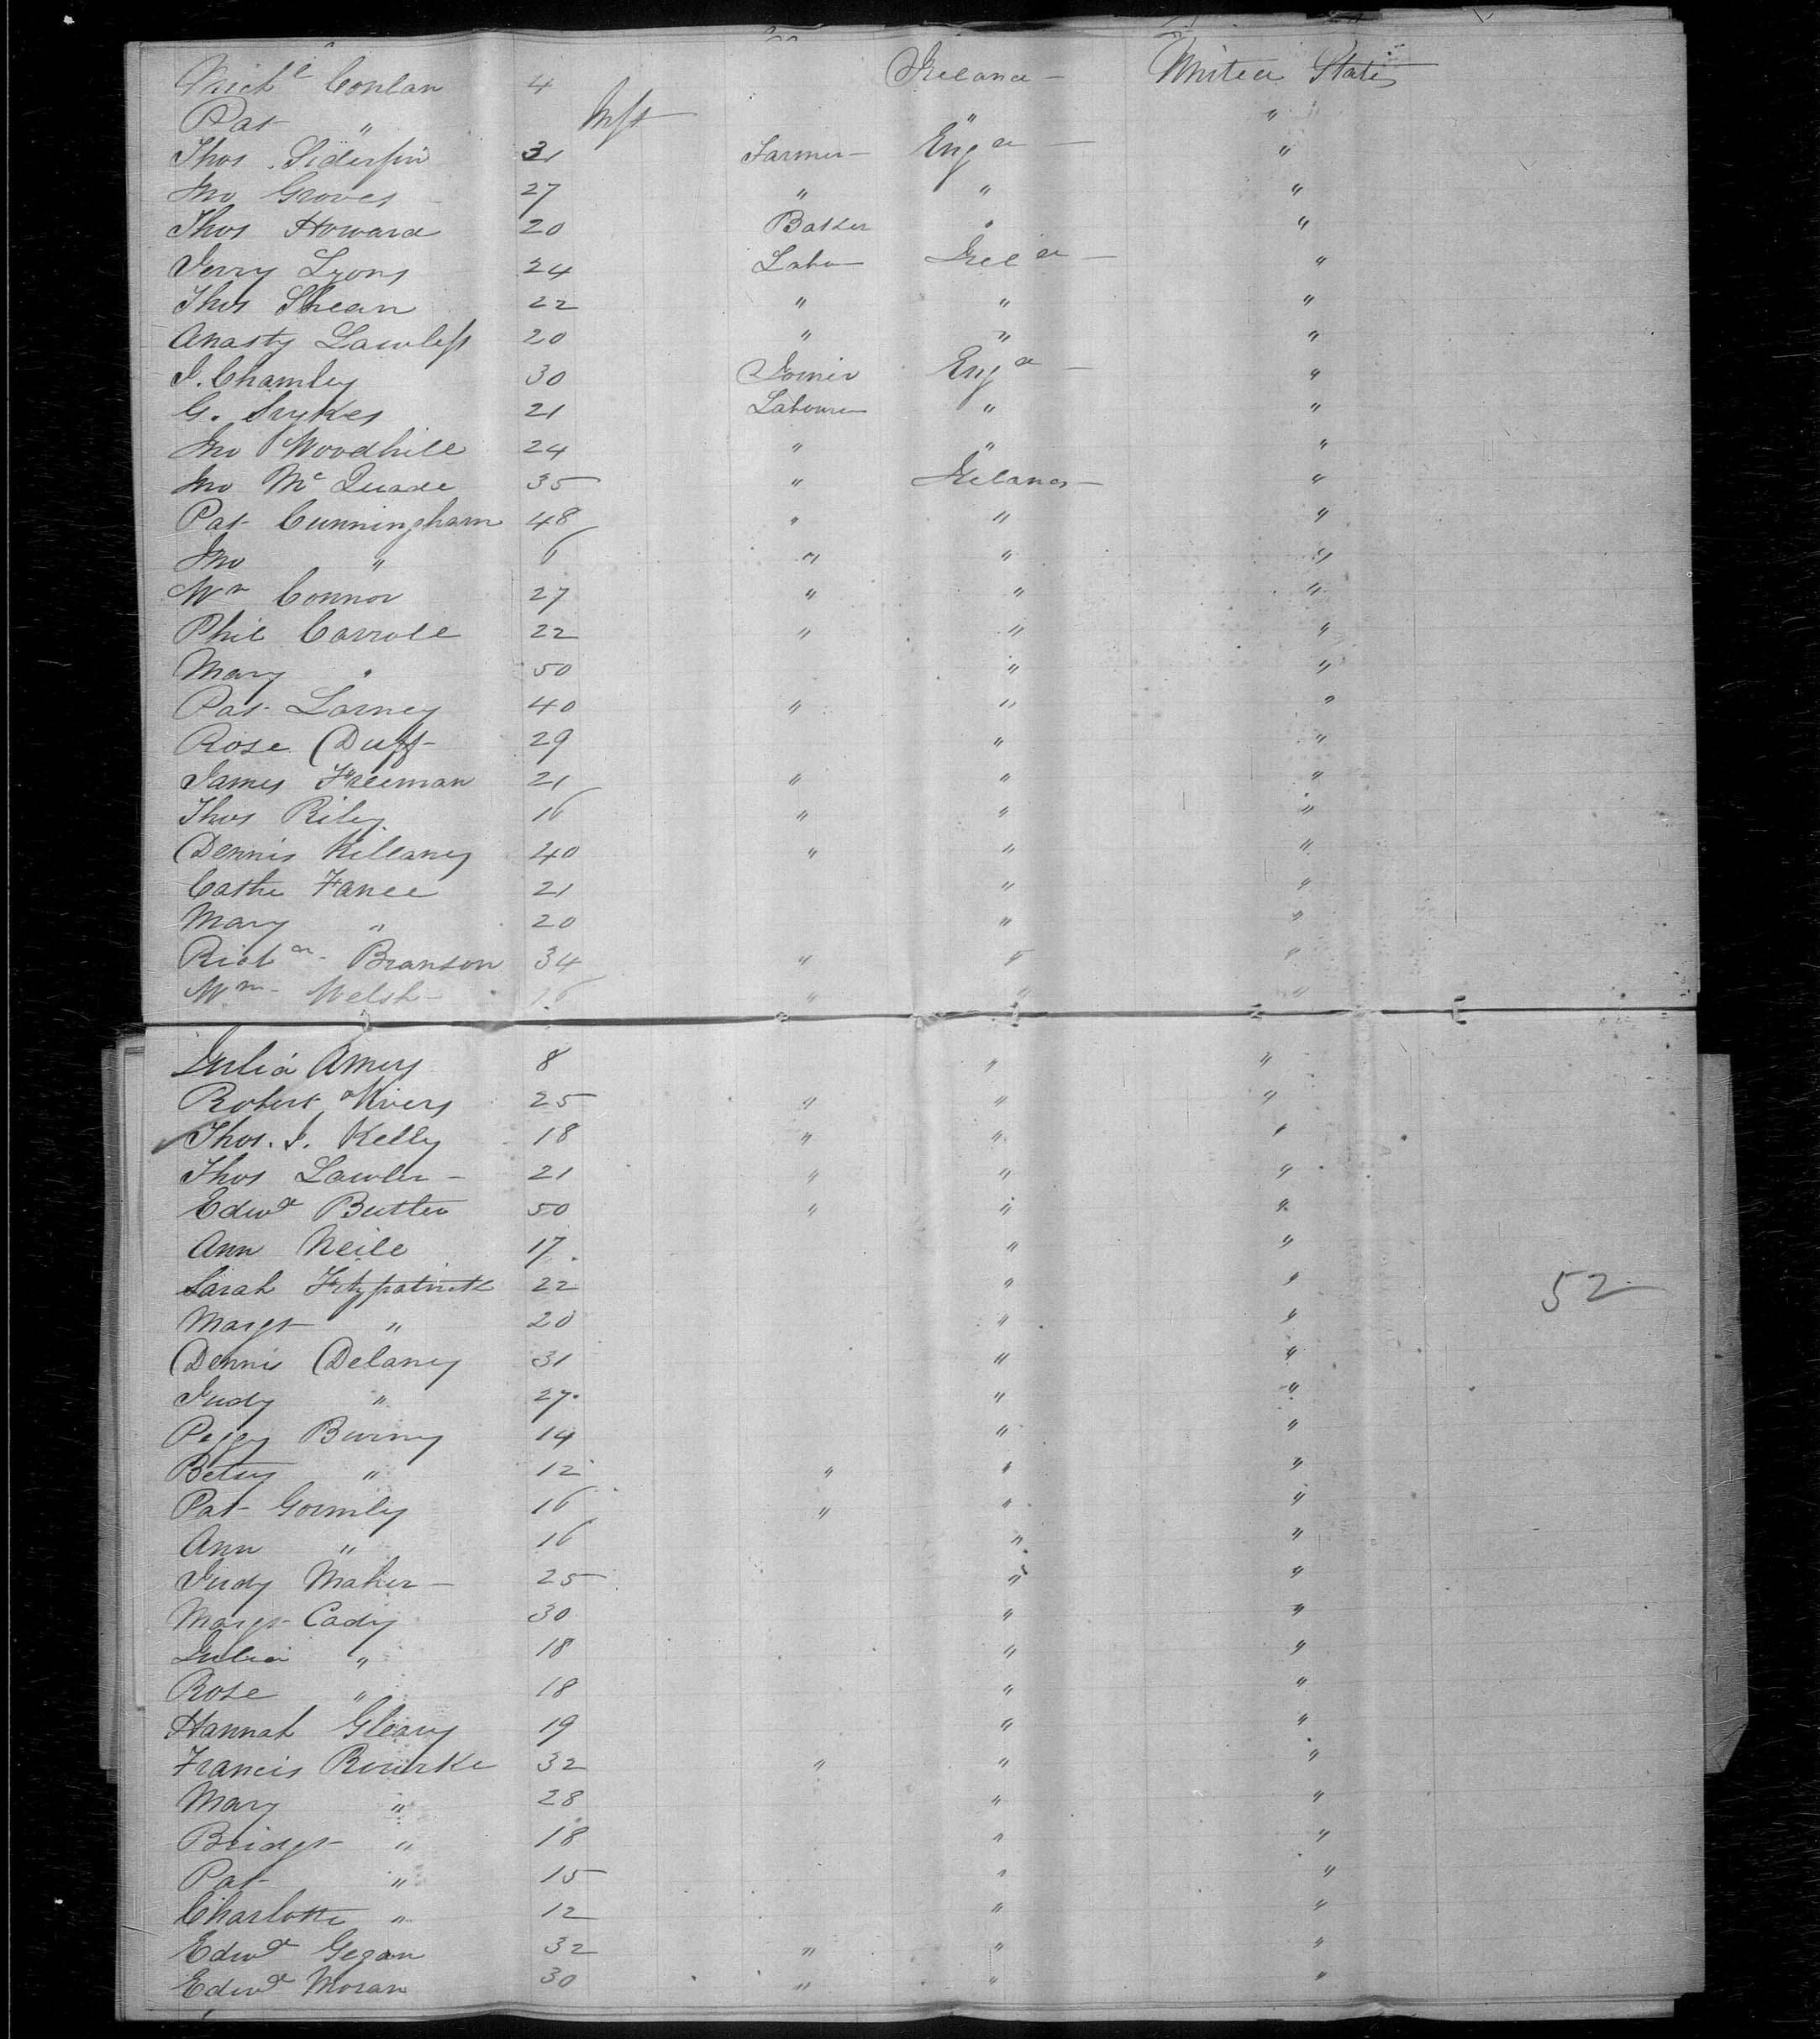 Mich^l Conlan 4 Ireland — United States
Pat " Inft " "
Thos. Siderfin 31 Farmer — Eng^d — "
Jno Groves — 27 " " "
Thos Howard 20 Baker " "
Jerry Lyons 24 Labo— Irel^d — "
Thos Shean 22 " " "
Anasty Lawless 20 " " "
J. Chamley 30 Joiner Eng^d — "
G. Sykes 21 Labourer " "
Jno Woodhill 24 " " "
Jno McQuade 35 " Ireland — "
Pat Cunningham 48 " " "
Jno " 6 " " "
Wm Connor 27 " " "
Phil Carroll 22 " " "
Mary " 50 " "
Pat Larney 40 " " "
Rose Duff 29 " "
James Freeman 21 " " "
Thos Riley 16 " " "
Dennis Killaney 40 " " "
Cathe 21 " "
Mary " 20 " "
Rich^d Branson 34 " " "
Wm Welsh — 16 " " "
Julia Amery 8 " "
Robert 25 " " "
Thos. J. Kelly 18 " " "
Thos Lawler — 21 " " "
Edw^d Butler 50 " " "
Ann Neile 17. " "
Sarah Fitzpatrick 22 " " 52
Margt " 20 " "
Denni Delaney 31 " "
Judy " 27. " "
Peggy Burny 14 " "
Betsy " 12 " " "
Pat Gormley 16 " " "
Ann " 16 " "
Judy Maher — 25 " "
Margt Cady 30 " "
Julia " 18 " "
Rose " 18 " "
Hannah Gleary 19 " "
Francis Rourke 32 " " "
Mary " 28 " "
Bridgt " 18 " "
Pat " 15 " "
Charlotte " 12 " "
Edw^d Gegan 32 " " "
Edw^d Moran 30 " " "